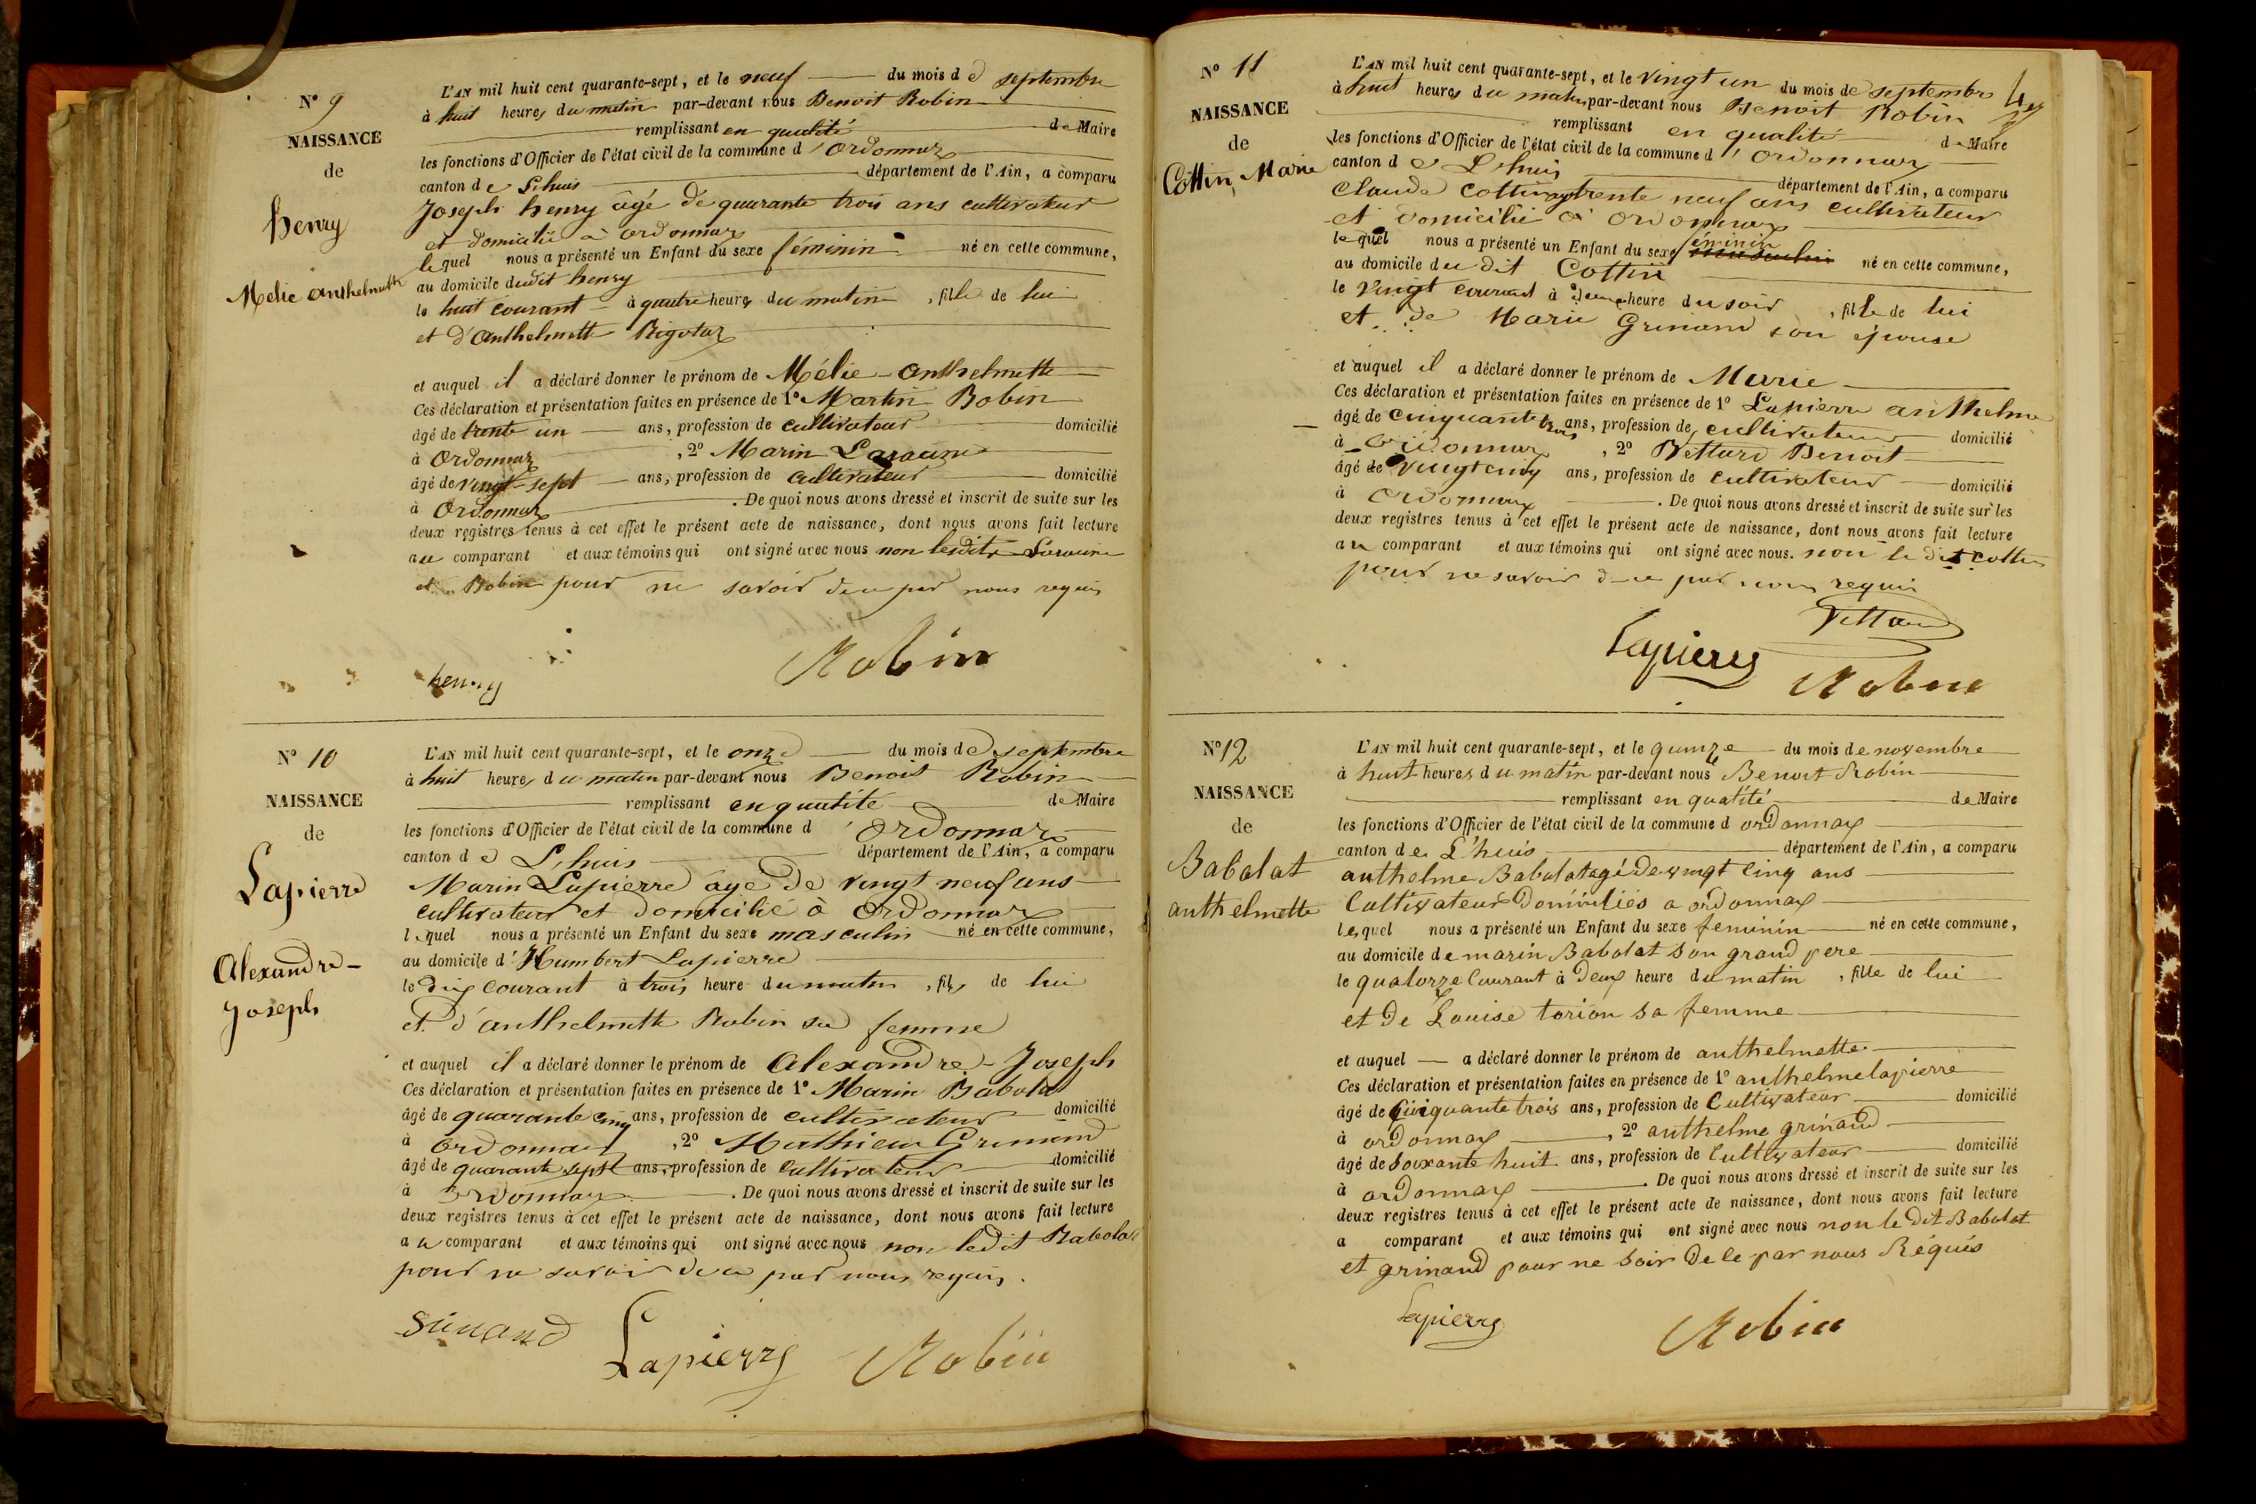 N° 9
NAISSANCE
de
henry
Mélie anthelmette
L'AN mil huit cent quarante-sept, et le neuf du mois de septembre
à huit heures du matin par-devant nous Benoit Robin
remplissant en qualité de Maire
les fonctions d'Officier de l'état civil de la commune d'Ordonnaz
canton de Lhuis département de l'Ain, a comparu
Joseph henry âgé de quarante trois ans cultivateur
et domicilié à ordonnaz
lequel nous a présenté un Enfant du sexe féminin né en cette commune,
au domicile dudit henry
le huit courant à quatre heures du matin, fille de lui
et d'anthelmette Bigotaz
et auquel il a déclaré donner le prénom de Mélie-anthelmette
Ces déclaration et présentation faites en présence de 1° Martin Robin
âgé de trente un ans, profession de cultivateur domicilié
à Ordonnaz, 2° Marin
âgé de vingt-sept ans, profession de cultivateur domicilié
à Ordonnaz. De quoi nous avons dressé et inscrit de suite sur les
deux registres tenus à cet effet le présent acte de naissance, dont nous avons fait lecture
au comparant et aux témoins qui ont signé avec nous non lesdits
et Robin pour ne savoir de ce par nous requis
henry
Robin
N° 10
NAISSANCE
de
Lapierre
Alexandre-
Joseph
L'AN mil huit cent quarante-sept, et le onze du mois de septembre
à huit heures du matin par-devant nous Benoit Robin
remplissant en qualité de Maire
les fonctions d'Officier de l'état civil de la commune d'Ordonnaz
canton de Lhuis département de l'Ain, a comparu
Marin Lapierre âgé de vingt neuf ans
cultivateur et domicilié à Ordonnaz
lequel nous a présenté un Enfant du sexe masculin né en cette commune,
au domicile d'Humbert Lapierre
le dix courant à trois heure du matin, fils de lui
et d'anthelmette Robin sa femme
et auquel il a déclaré donner le prénom de Alexandre-Joseph
Ces déclaration et présentation faites en présence de 1° Marin Babolat
âgé de quarante cinq ans, profession de cultivateur domicilié
à Ordonnaz, 2° Mathieu Grinand
âgé de quarante sept ans, profession de cultivateur domicilié
à Ordonnaz. De quoi nous avons dressé et inscrit de suite sur les
deux registres tenus à cet effet le présent acte de naissance, dont nous avons fait lecture
au comparant et aux témoins qui ont signé avec nous non ledit Babolat
pour ne savoir de ce par nous requis.
Lapierre Robin
N° 11
NAISSANCE
de
Cottin, Marie
L'AN mil huit cent quarante-sept, et le vingt un du mois de septembre
à huit heures du matin par-devant nous Benoit Robin
remplissant en qualité de Maire
les fonctions d'Officier de l'état civil de la commune d'Ordonnaz
canton de Lhuis département de l'Ain, a comparu
Claude Cottin âgé trente neuf ans cultivateur
et domicilié à Ordonnaz
lequel nous a présenté un Enfant du sexe féminin masculin né en cette commune,
au domicile du dit Cottin
le vingt courant à deux heure du soir, fille de lui
et de Marie Grinand son épouse
et auquel il a déclaré donner le prénom de Marie
Ces déclaration et présentation faites en présence de 1° Lapierre anthelme
âgé de cinquante trois ans, profession de cultivateur domicilié
à Ordonnaz, 2° Vettard Benoit
âgé de vingt cinq ans, profession de cultivateur domicilié
à Ordonnaz. De quoi nous avons dressé et inscrit de suite sur les
deux registres tenus à cet effet le présent acte de naissance, dont nous avons fait lecture
au comparant et aux témoins qui ont signé avec nous. non le dit Cottin
pour ne savoir de ce par nous requis
Vettard
Lapierre Robin
N° 12
NAISSANCE
de
Babolat
anthelmette
L'AN mil huit cent quarante-sept, et le quinze du mois de novembre
à huit heures du matin par-devant nous Benoit Robin
remplissant en qualité de Maire
les fonctions d'Officier de l'état civil de la commune d ordonnax
canton de L'huis département de l'Ain, a comparu
anthelme Babolat agé de vingt cinq ans
Cultivateur Domiciliés a ordonnax
lequel nous a présenté un Enfant du sexe feminin né en cette commune,
au domicile de marin Babolat son grand pere
le quatorze Courant à deux heure du matin, fille de lui
et de Louise torion sa femme
et auquel a déclaré donner le prénom de anthelmette
Ces déclaration et présentation faites en présence de 1° anthelme lapierre
âgé de Cinquante trois ans, profession de Cultivateur domicilié
à ordonnax, 2° anthelme grinand
âgé de Soixante huit ans, profession de Cultivateur domicilié
à ordonnax. De quoi nous avons dressé et inscrit de suite sur les
deux registres tenus à cet effet le présent acte de naissance, dont nous avons fait lecture
a comparant et aux témoins qui ont signé avec nous non le dit Babolat
et grinand pour ne Soir De Ce par nous Réquis
Lapierre Robin